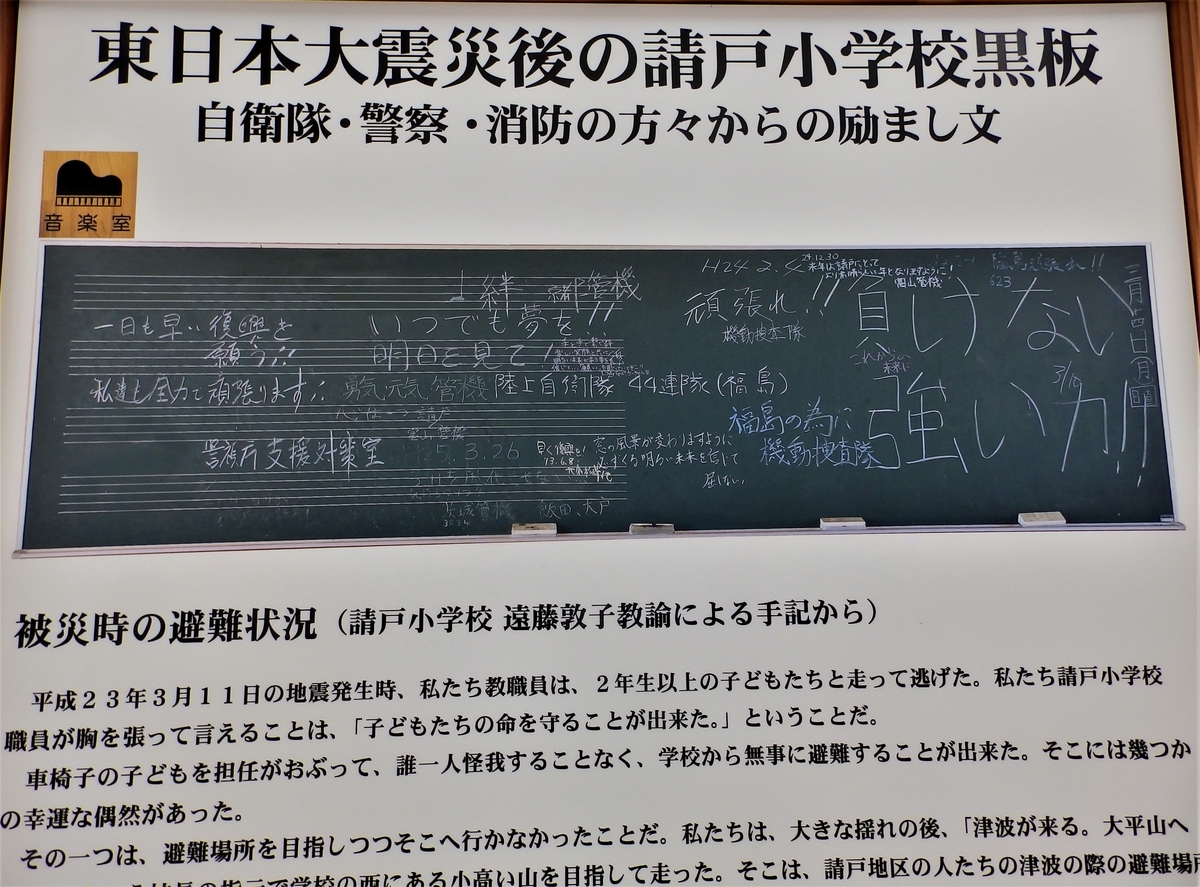 東日本大震災後の請戸小学校黒板
自衛隊・警察・消防の方々からの励まし文
音楽室
絆 京都管機
一日も早い復興を
願う!!
いつでも夢を!!
明日を見て!
私達も全力で頑張ります!!
勇気 元気 管機
陸上自衛隊 44連隊(福島)
警視庁支援対策室
H25.3.26
茨城管機 飯田、大戸
H24 2.4
頑張れ!!
機動捜査隊
24.12.30
来年は請戸にとって
より素晴らしい年となりますように!
岡山管機
福島頑張れ!!
負けない
これからの
未来に
強い力!!
福島の為に
機動捜査隊
窓の風景が変わりますように
明るい未来を信じて
三月十四日
被災時の避難状況(請戸小学校 遠藤敦子教諭による手記から)
平成23年3月11日の地震発生時、私たち教職員は、2年生以上の子どもたちと走って逃げた。私たち請戸小学校
職員が胸を張って言えることは、「子どもたちの命を守ることが出来た。」ということだ。
車椅子の子どもを担任がおぶって、誰一人怪我することなく、学校から無事に避難することが出来た。そこには幾つか
の幸運な偶然があった。
その一つは、避難場所を目指しつつそこへ行かなかったことだ。私たちは、大きな揺れの後、「津波が来る。大平山へ
の指示で学校の西にある小高い山を目指して走った。そこは、請戸地区の人たちの津波の際の避難場所